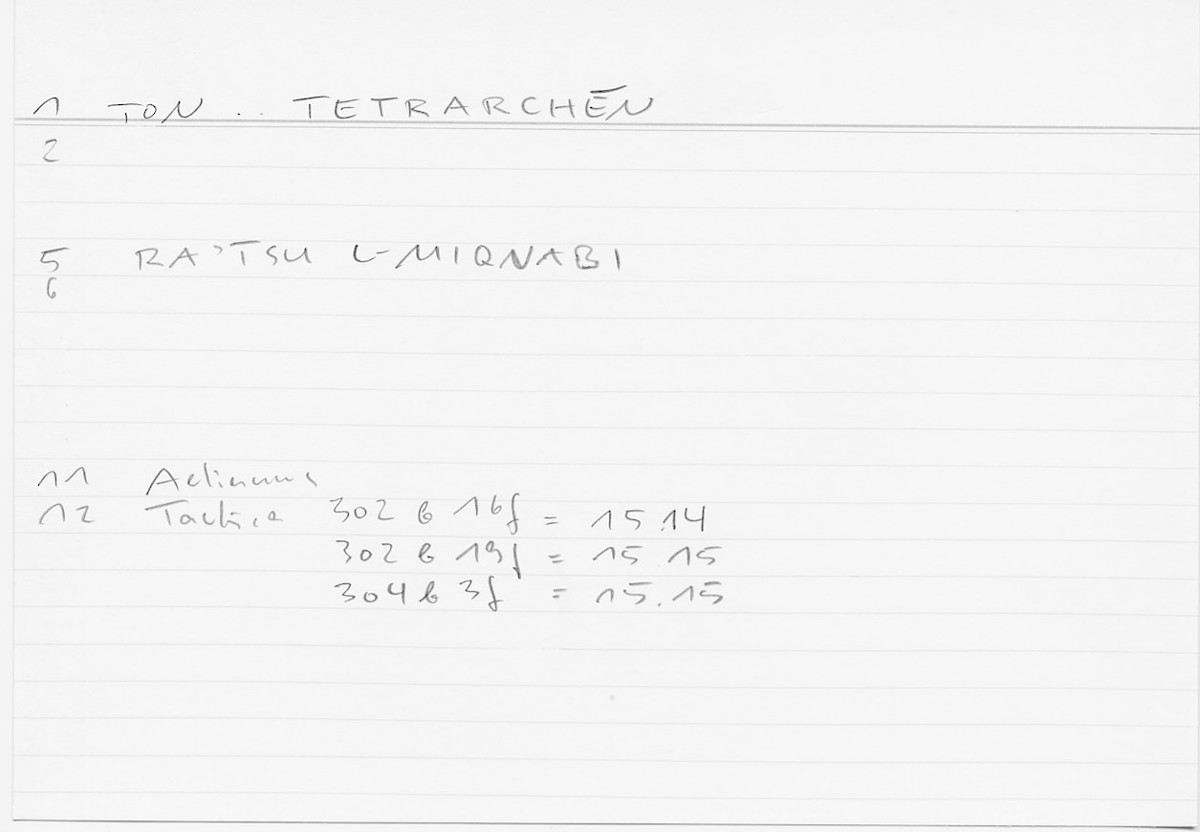 1 TON .. TETRARCHĒN
2
5 RA'TSU L-MIQNABI
6
11 Aelianus
12 Tactica 302 b 16f = 15.14
302 b 19f = 15.15
304 b 3f = 15.15